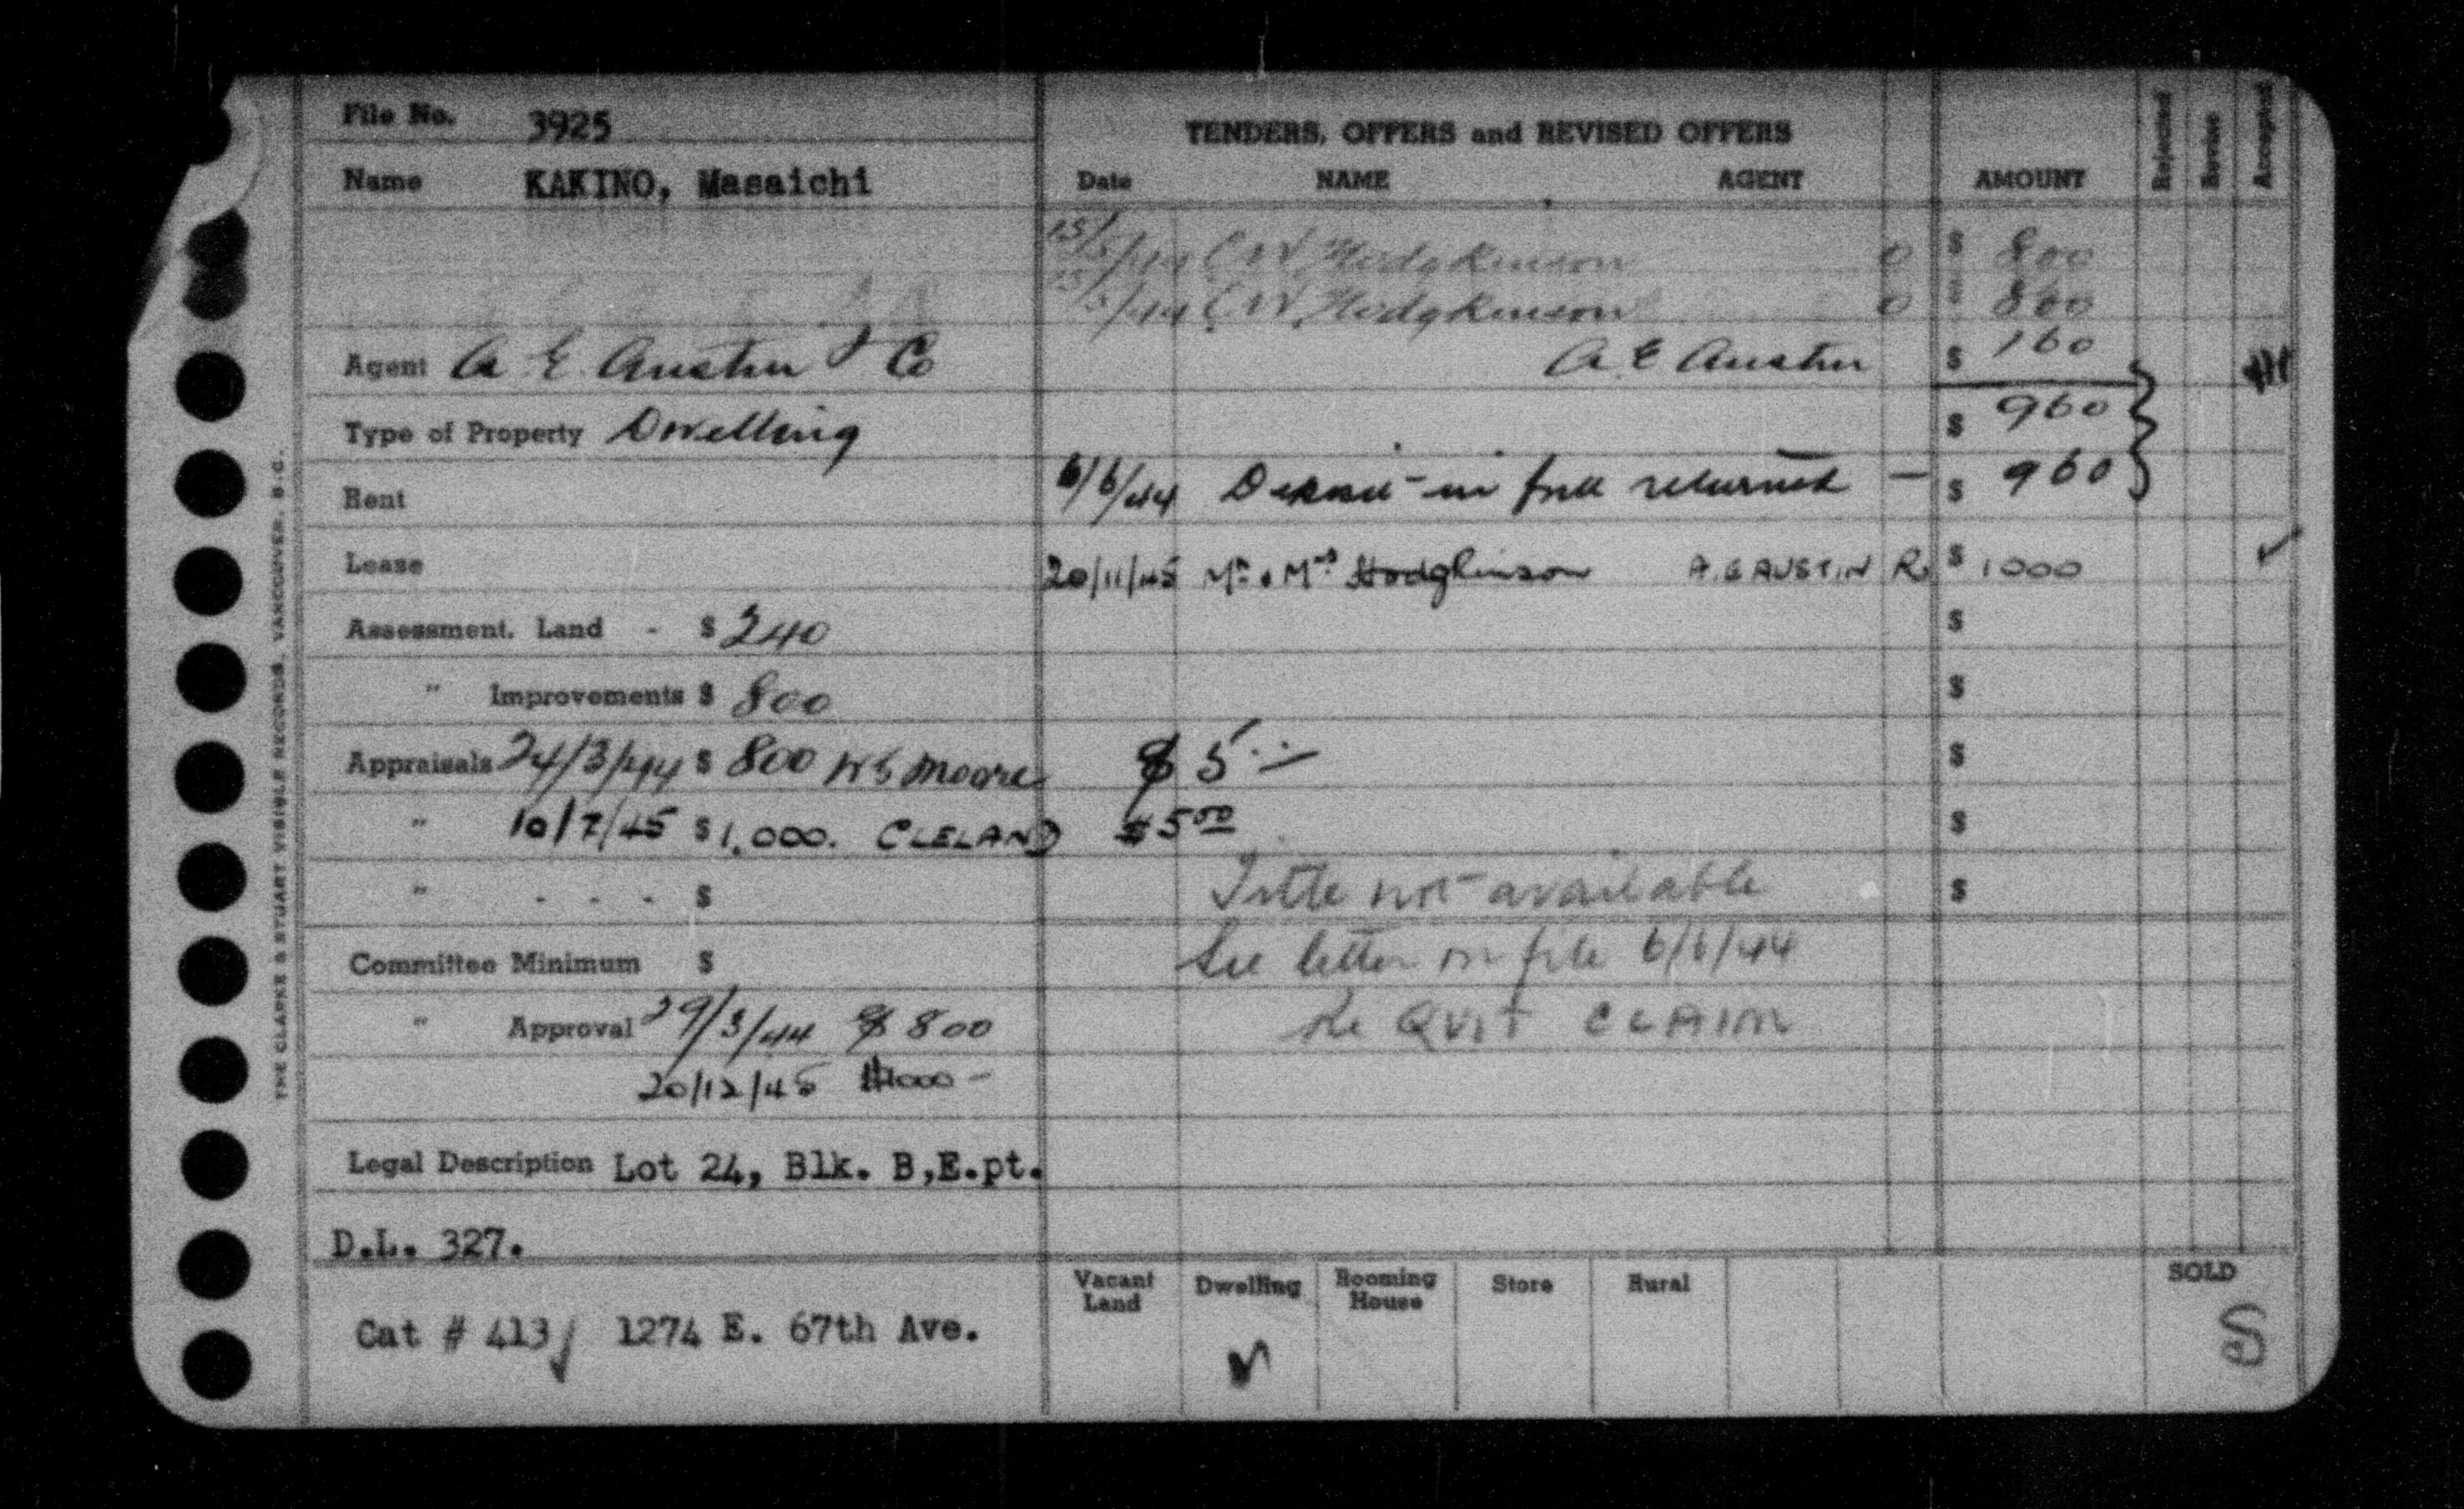 File No. 3925
Name KAKINO, Masaichi
Agent A E Austin & Co
Type of Property Dwelling
Rent
Lease
Assessment. Land - $ 240
" Improvements $ 800
Appraisals 24/3/44 $ 800 W S Moore $ 5
" 10/7/45 $ 1,000. CLELAND $5 00
" - - - $
Committee Minimum $
" Approval 29/3/44 $ 800
20/12/45 $1000 -
Legal Description Lot 24, Blk. B,E.pt.
D.L. 327.
Cat # 413 1274 E. 67th Ave.
THE CLARKE & STUART VISIBLE RECORDS, VANCOUVER, B.C.
TENDERS, OFFERS and REVISED OFFERS
Date NAME AGENT AMOUNT Rejected Revise Accepted
15/5/44 C W Hodgkinson 0 $ 800
/5/44 C W Hodgkinson 0 $
A E Austin $ 160
$ 960
6/6/44 Deposit in full returned - $ 960
20/11/45 Mr. & Mrs. Hodgkinson A.E AUSTIN R. $ 1000
$
$
$
$
$
Title not available
See letter on file 6/6/44
Re QUIT CLAIM
Vacant Land Dwelling Rooming House Store Rural SOLD
S